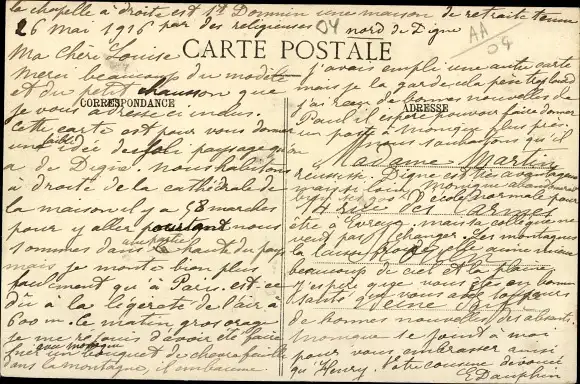 la chapelle à droite est St Domnin une maison de retraite tenue
26 Mai 1916 par des religieuses nord de Digne
04
AA
04
CARTE POSTALE
CORRESPONDANCE
ADRESSE
Ma Chère Louise
Merci beaucoup du modèle
et du petit chausson que
je vous adresse ci inclus.
Cette carte est pour vous donner
une idée du joli paysage qu'on
a de Digne. Nous habitons
à droite de la cathédrale de
la maison il y a 58 marches
pour y aller pourtant nous
sommes dans la partie haute du pays
mais je monte bien plus
facilement qu'à Paris. est ce
dû à la légèreté de l'air à
600 m. Ce matin gros orage
je me réjouis d'avoir été faire
avec Monique
un bouquet de chèvrefeuille
dans la montagne, il embaume
J'avais empli une autre carte
mais je la garde cela pèse trop lourd
j'ai reçu de bonnes nouvelles de
Paul il espère pouvoir faire donner
un poste à Monique plus près
nous souhaitons qu'il
Madame Martin
réussisse Digne est très avantageux
mais si loin Monique
l'école normale pour
4 rue des Carmes
être à mais sa collègue ne
veut pas changer. Les montagnes
beaucoup de ciel et la plaine
J'espère que vous êtes en bonne
santé que vous avez toujours
de bonnes nouvelles des absents.
Monique se joint à moi
pour vous embrasser ainsi
qu'Henry. Votre cousine dévouée
E Dauphin